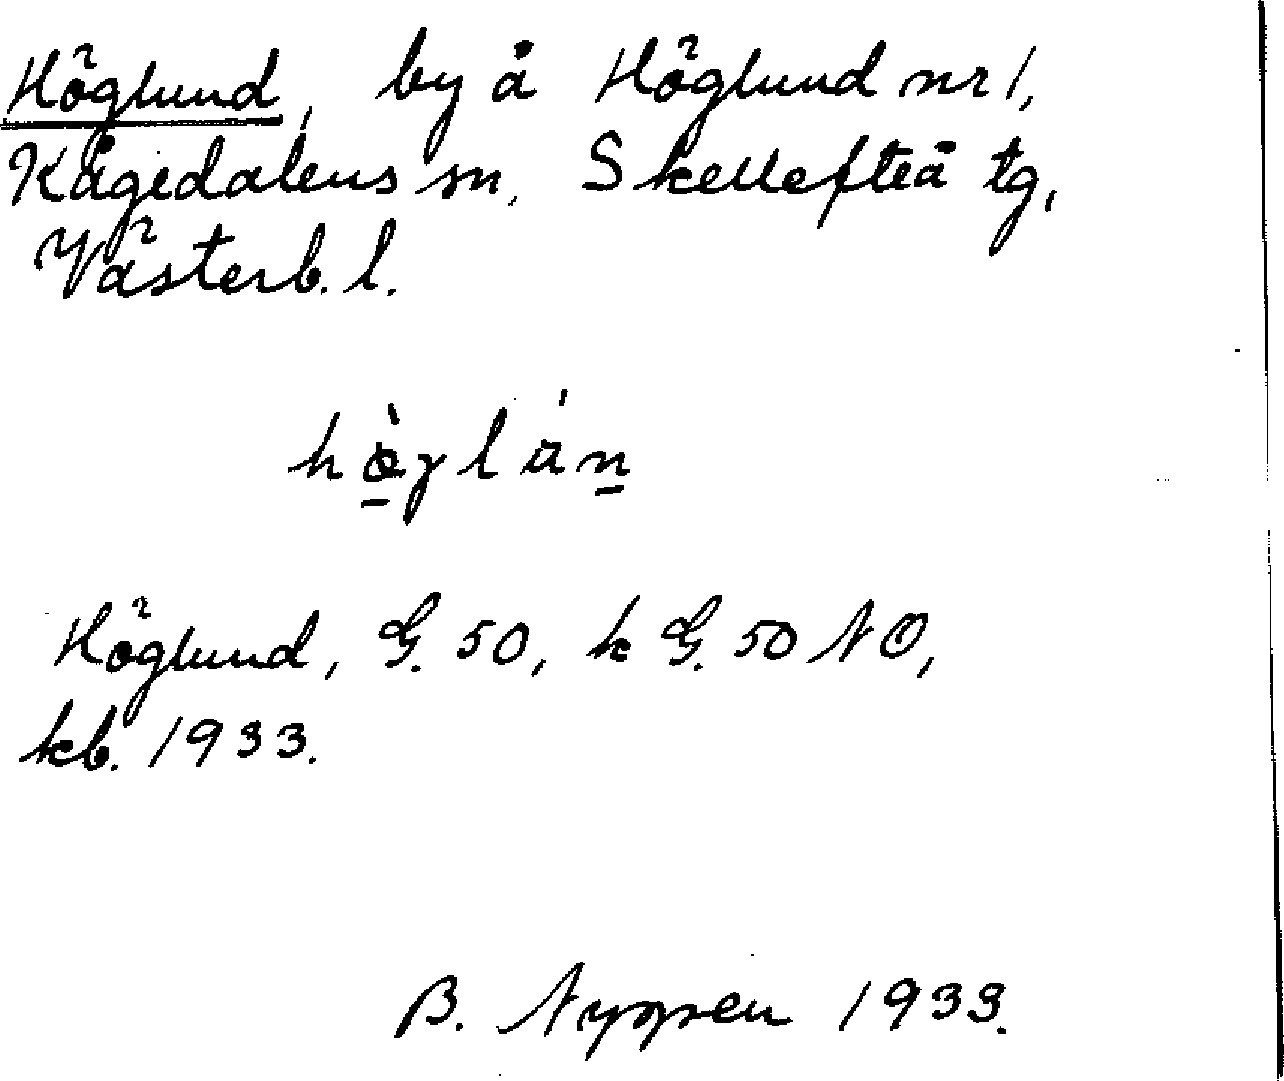 Höglund, by å Höglund nr 1,
Kågedalens sn, Skellefteå tg,
Västerb. l.
Höglund, G. 50, k G. 50 NO,
kb. 1933.
B. Nygren 1933.